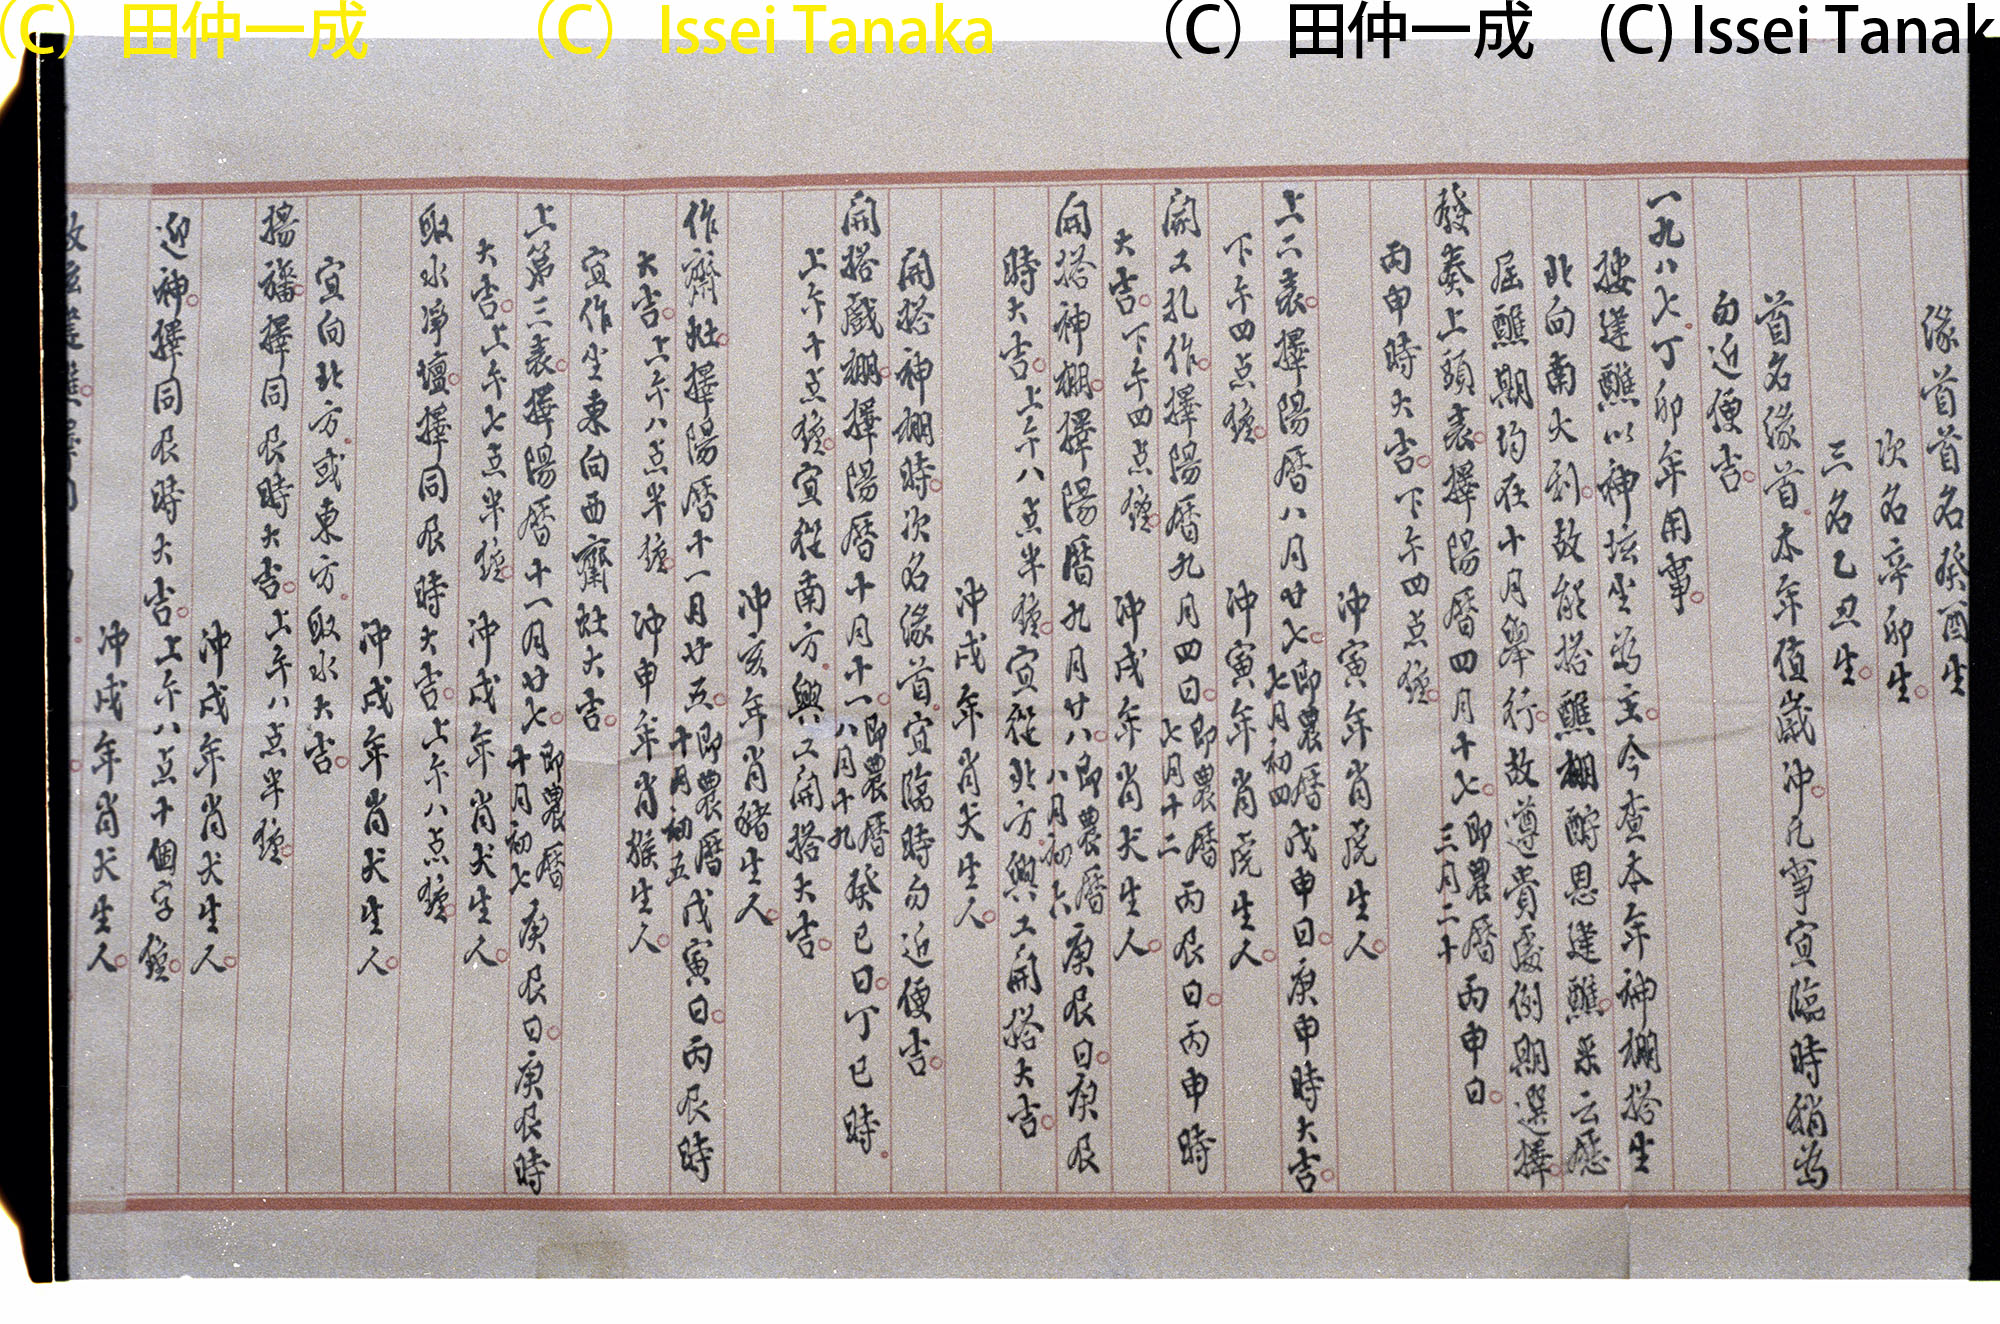 (C) 田仲一成 (C) Issei Tanaka (C) 田仲一成 (C) Issei Tanak
緣首首名癸酉生
次名辛卯生
三名乙丑生
首名緣首本年值歲冲凡事宜臨時稍為
勿近便吉
一九八七丁卯年用事
按進醮以神坛坐為主今查本年神棚搭坐
北向南大利故能搭醮棚酧恩進醮
屆醮期均在十月舉行故遵貴處例期選擇
發奏上頭表擇陽曆四月十七即農曆三月二十丙申日
丙申時大吉下午四点鐘
冲寅年肖虎生人
上二表擇陽曆八月廿七即農曆七月初四戊申日庚申時大吉
下午四点鐘 冲寅年肖虎生人
開工扎作擇陽曆九月四日即農曆七月十二丙辰日丙申時
大吉下午四点鐘 冲戌年肖犬生人
開搭神棚擇陽曆九月廿八即農曆八月初六庚辰日庚辰
時大吉上午八点半鐘宜從北方興工開搭大吉
冲戌年肖犬生人
開搭神棚時次名緣首宜臨時勿近便吉
開搭戲棚擇陽曆十月十一即農曆八月十九癸巳日丁巳時
上午十点鐘宜從南方興工開搭大吉
冲亥年肖豬生人
作齋灶擇陽曆十一月廿五即農曆十月初五戊寅日丙辰時
大吉上午八点半鐘 冲申年肖猴生人
宜作坐東向西齋灶大吉
上第三表擇陽曆十一月廿七即農曆十月初七庚辰日庚辰時
大吉上午七点半鐘 冲戌年肖犬生人
取水淨壇擇同辰時大吉上午八点鐘
冲戌年肖犬生人
宜向北方或東方取水大吉
揚旛擇同辰時大吉上午八点半鐘
冲戌年肖犬生人
迎神擇同辰時大吉上午八点十個字鐘
冲戌年肖犬生人